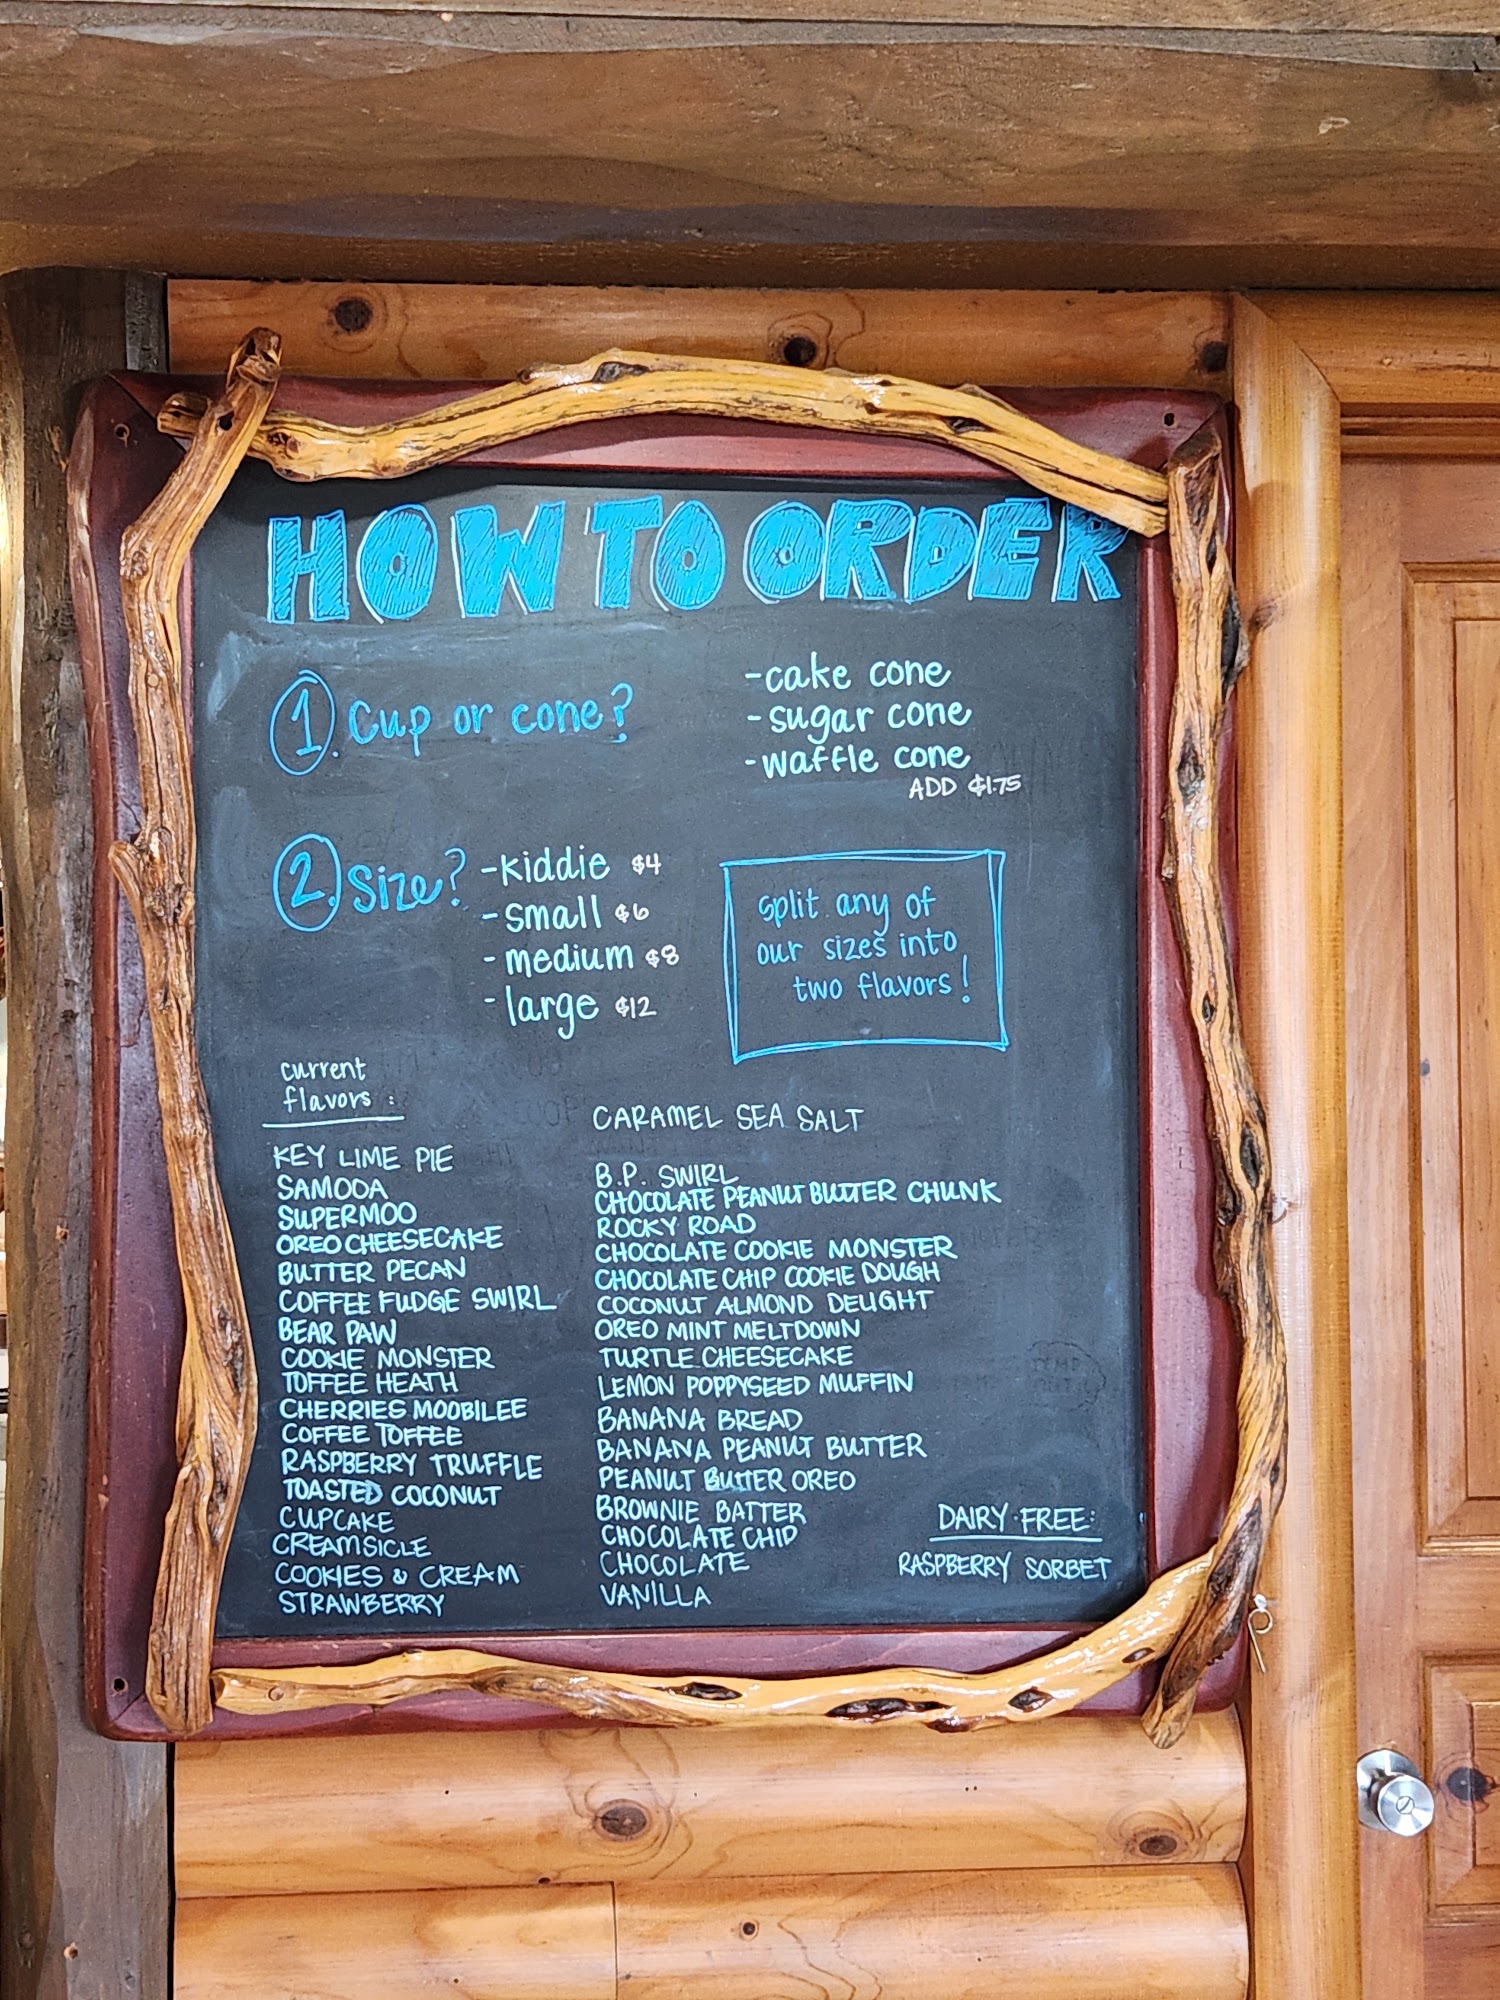 HOW TO ORDER
1. Cup or cone?
-cake cone
-sugar cone
-waffle cone
ADD $1.75
2. Size?
-kiddie $4
-small $6
-medium $8
-large $12
split any of
our sizes into
two flavors!
current
flavors:
KEY LIME PIE
SAMOOA
SUPERMOO
OREO CHEESECAKE
BUTTER PECAN
COFFEE FUDGE SWIRL
BEAR PAW
COOKIE MONSTER
TOFFEE HEATH
CHERRIES MOOBILEE
COFFEE TOFFEE
RASPBERRY TRUFFLE
TOASTED COCONUT
CUPCAKE
CREAMSICLE
COOKIES & CREAM
STRAWBERRY
CARAMEL SEA SALT
B.P. SWIRL
CHOCOLATE PEANUT BUTTER CHUNK
ROCKY ROAD
CHOCOLATE COOKIE MONSTER
CHOCOLATE CHIP COOKIE DOUGH
COCONUT ALMOND DELIGHT
OREO MINT MELTDOWN
TURTLE CHEESECAKE
LEMON POPPYSEED MUFFIN
BANANA BREAD
BANANA PEANUT BUTTER
PEANUT BUTTER OREO
BROWNIE BATTER
CHOCOLATE CHIP
CHOCOLATE
VANILLA
DAIRY-FREE:
RASPBERRY SORBET